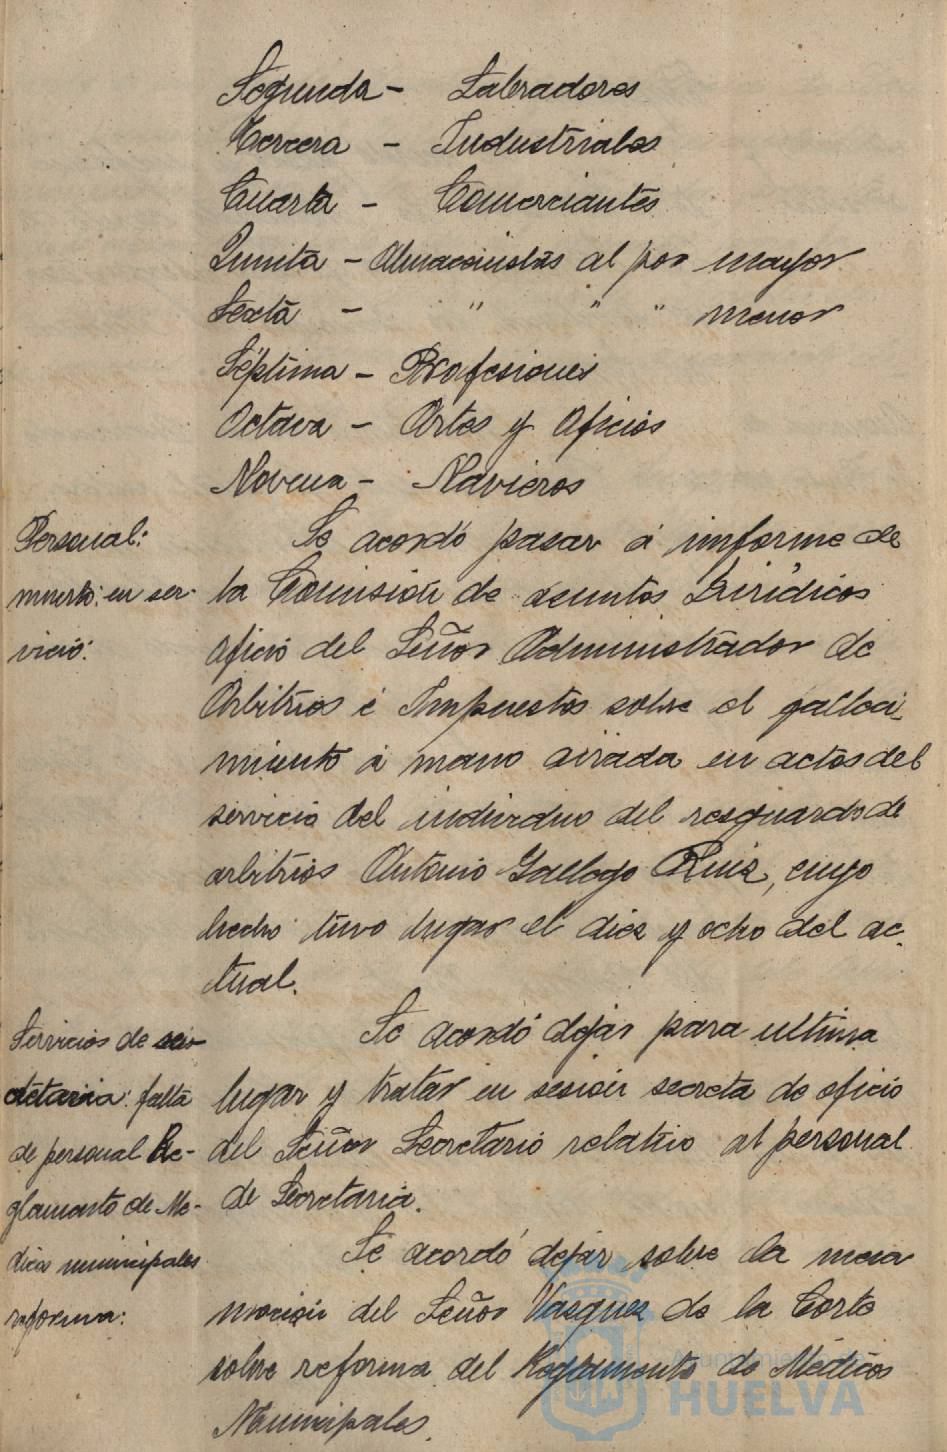 Segunda - Labradores
Tercera - Industriales
Cuarta - Comerciantes
Quinta - Almacenistas al por mayor
Sexta - " " " menor
Séptima - Profesiones
Octava - Artes y Oficios
Novena - Navieros
Personal:
muerto en ser-
vicio:
Se acordó pasar á informe de
la Comisión de asuntos Jurídicos
oficio del Señor Administrador de
Arbitrios é Impuestos sobre el falleci-
miento á mano airada en actos del
servicio del individuo del resguardo de
arbitrios Antonio Gallego Ruiz, cuyo
hecho tuvo lugar el diez y ocho del ac-
tual.
Servicios de sec-
retaria: falta
de personal Re-
glamento de Me-
dicos municipales
reforma:
Se acordó dejar para ultimo
lugar y tratar en sesión secreta de oficio
del Señor Secretario relativo al personal
de Secretaria.
Se acordó dejar sobre la mesa
moción del Señor Vazquez de la Corte
sobre reforma del Reglamento de Médicos
Municipales.
Ayuntamiento de
HUELVA